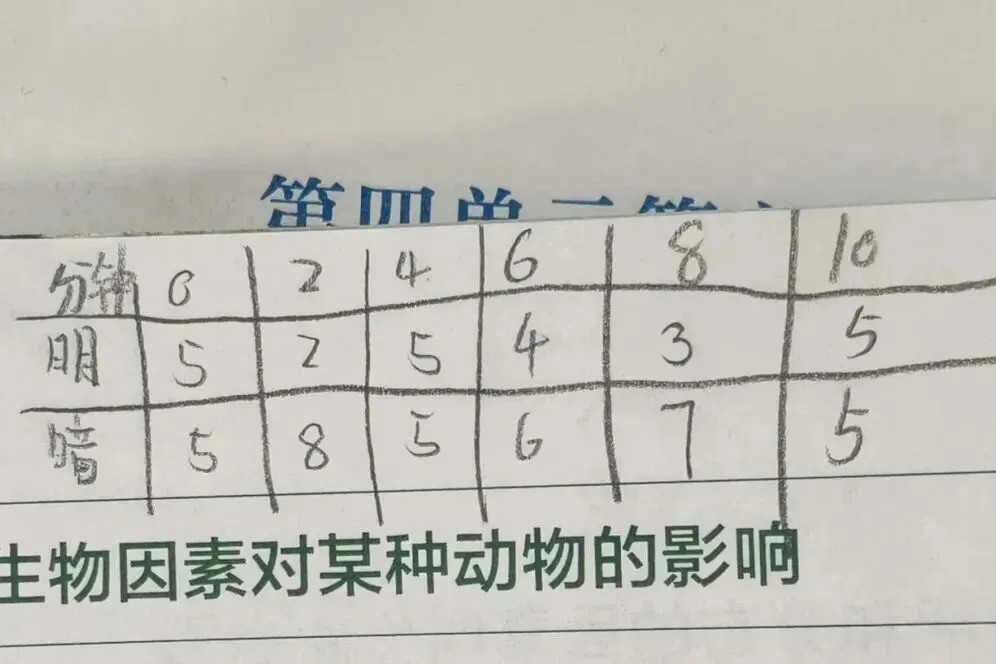 第四单元第
分钟 0 2 4 6 8 10
明 5 2 5 4 3 5
暗 5 8 5 6 7 5
生物因素对某种动物的影响